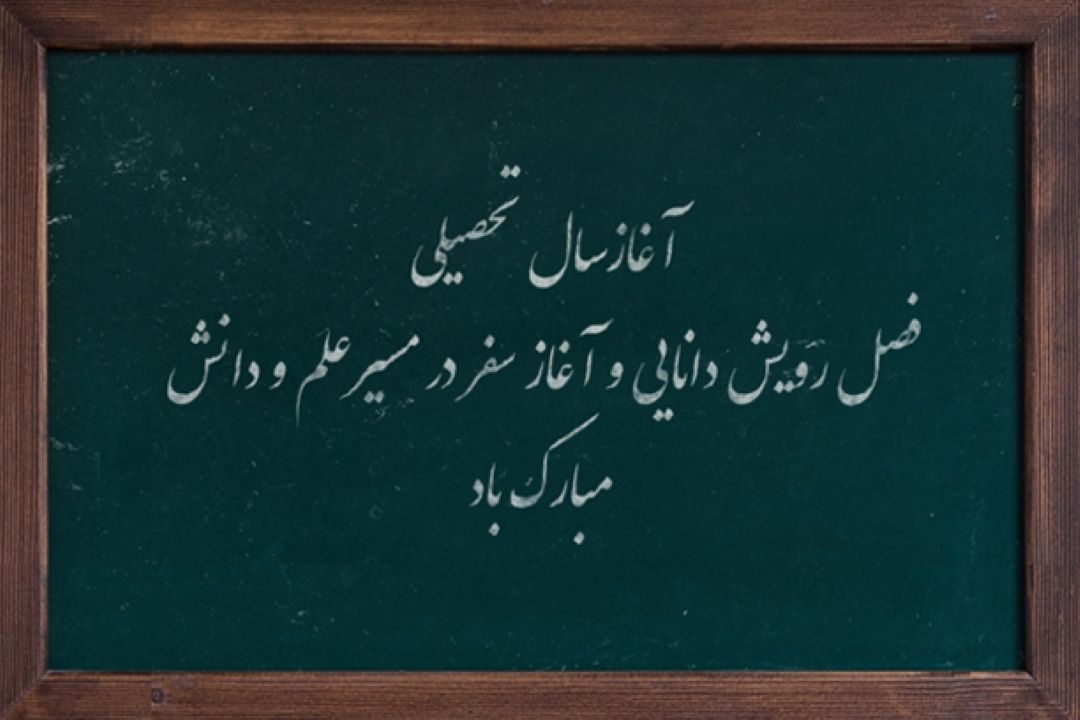 آغاز سال تحصیلی
فصل رویش دانایی و آغاز سفر در مسیر علم و دانش
مبارک باد